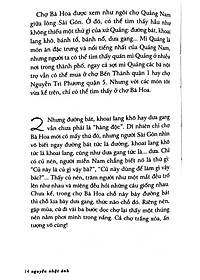 Chợ Bà Hoa được xem như ngôi chợ Quảng Nam
giữa lòng Sài Gòn. Ở đó, có thể tìm thấy hầu như
không thiếu một thứ gì của xứ Quảng: đường bát, khoai
lang khô, bánh tổ, bánh nổ, dưa gang... Mì Quảng là
món ăn đặc trưng và nổi tiếng nhất của Quảng Nam,
nhưng người ta có thể tìm thấy quán mì Quảng ở nhiều
nơi trong thành phố, ngay cả sợi mì Quảng các bà nội
trợ cũng có thể mua ở chợ Bến Thành quận 1 hay chợ
Nguyễn Tri Phương quận 5. Nhưng với các món tôi
vừa kể trên, chỉ có thể tìm thấy ở chợ Bà Hoa.
2
Nhưng đường bát, khoai lang khô hay dưa gang
vẫn chưa phải là "hàng độc". Dĩ nhiên chỉ chợ
Bà Hoa mới có những thứ đó, nhưng người Sài Gòn nhìn
vô biết ngay đường bát tức là đường, khoai lang khô
tức là khoai lang, cũng như dưa gang tức là dưa. Còn
củ nén, người miền Nam chẳng biết nó là thứ gì:
"Củ này là củ gì vậy bác?", "Củ này dùng để làm gì vậy
bác?"... Thấy củ nén, trăm người như một đều thắc mắc
như vậy và miệng đều hỏi những câu giống nhau.
Chưa kể, trong chợ Bà Hoa, củ nén không chỉ là củ
nén. Củ nén bày ra đó là gia vị, thức nào cũng có. Riêng
nén, gặp mùa, củ đã và bó buộc dọc chợ lại thấy một thúng
nén nằm phơi mình trong nắng. Cả chợ trắng xóa, ấn
tượng vô cùng!
14 nguyễn nhật ánh